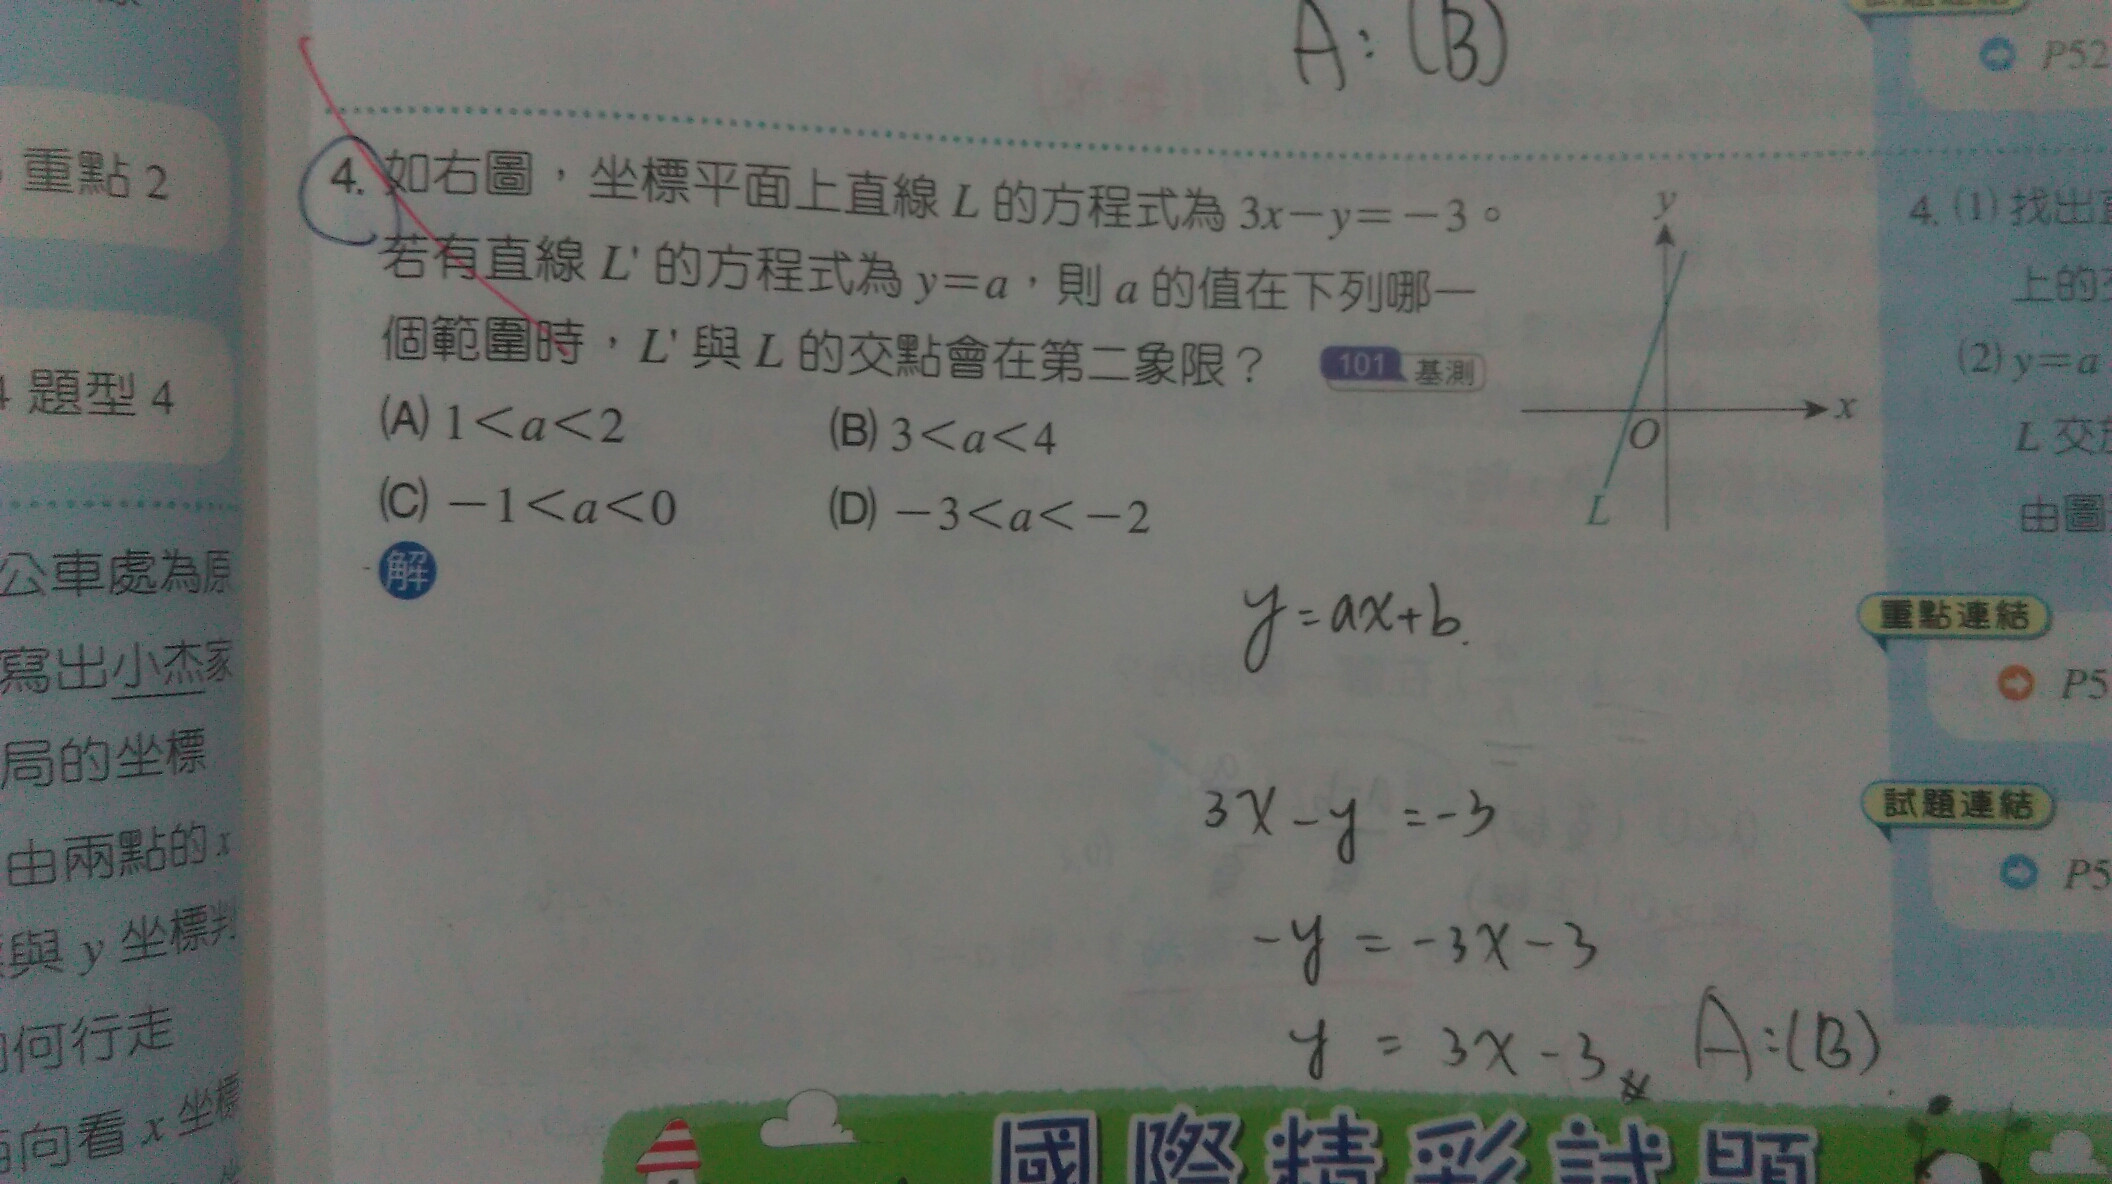 A:(B)
P52
重點2
4. 如右圖，坐標平面上直線 L 的方程式為 3x－y＝－3。
若有直線 L' 的方程式為 y＝a，則 a 的值在下列哪一
個範圍時，L' 與 L 的交點會在第二象限？ 101 基測
(A) 1＜a＜2 (B) 3＜a＜4
(C) －1＜a＜0 (D) －3＜a＜－2
解
y
x
O
L
y=ax+b.
3x-y=-3
-y=-3x-3
y=3x-3
A:(B)
題型4
公車處為原
寫出小杰家
局的坐標
由兩點的 x
與 y 坐標判
何行走
向看 x 坐標
4. (1) 找出
上的
(2) y＝a
L 交
由圖
重點連結
P5
試題連結
P5
國際精彩試題